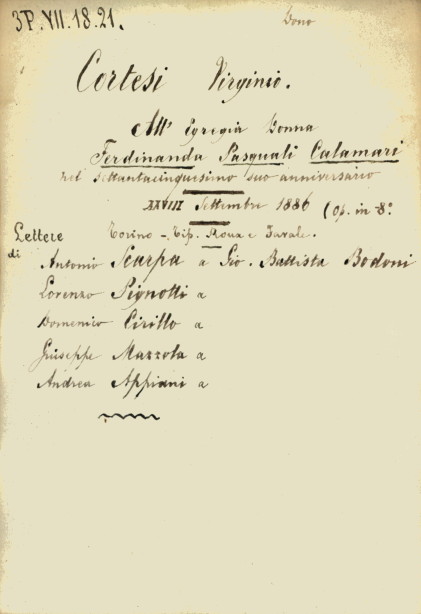 3P.VII.18.21.
Dono
Cortesi Virginio.
All' Egregia Donna
Ferdinanda Pasquali Calamari
nel Settantacinquesimo suo anniversario
XXVIII Settembre 1886 (Op. in 8º
Torino - Tip. Roux e Favale.
Lettere
di
Antonio Scarpa a Gio. Battista Bodoni
Lorenzo Pignotti a
Domenico Cirillo a
Giuseppe Mazzola a
Andrea Appiani a